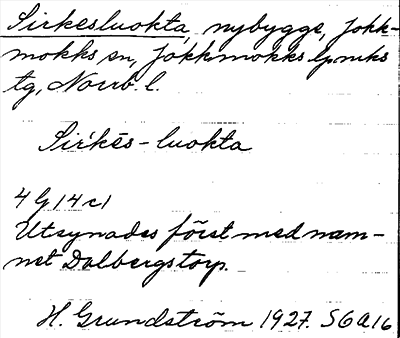 Sirkesluokta, nybygge, Jokk-
mokks sn, Jokkmokks lpmks
tg, Norrb. l.
Sir'kēs-luokta
4 G 14 c 1
Utsynades först med nam-
net Dalbergstorp.
H. Grundström 1927. SGA16